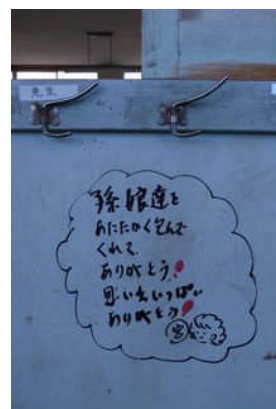 先生
孫娘達を
あたたかく包んで
くれて、
ありがとう!
思い出いっぱい
ありがとう!